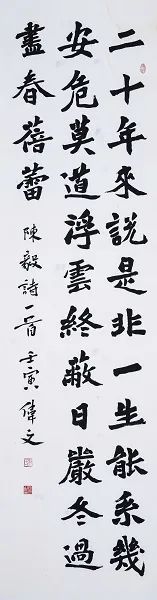 二十年來說是非一生能系幾
安危莫道浮雲終蔽日嚴冬過
盡春蓓蕾
陳毅詩一首 壬寅偉文